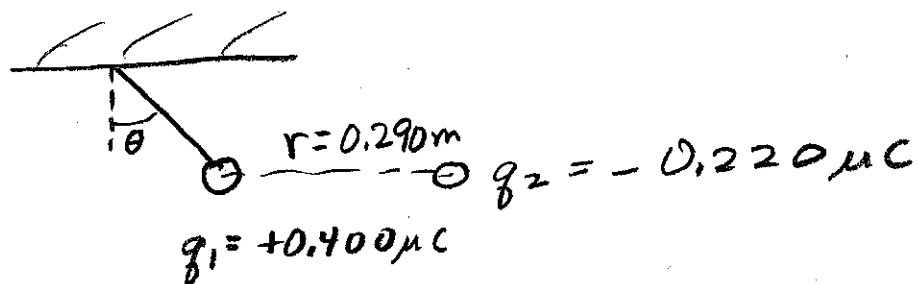 θ
r=0.290m
q₂ = -0.220μC
q₁= +0.400μC